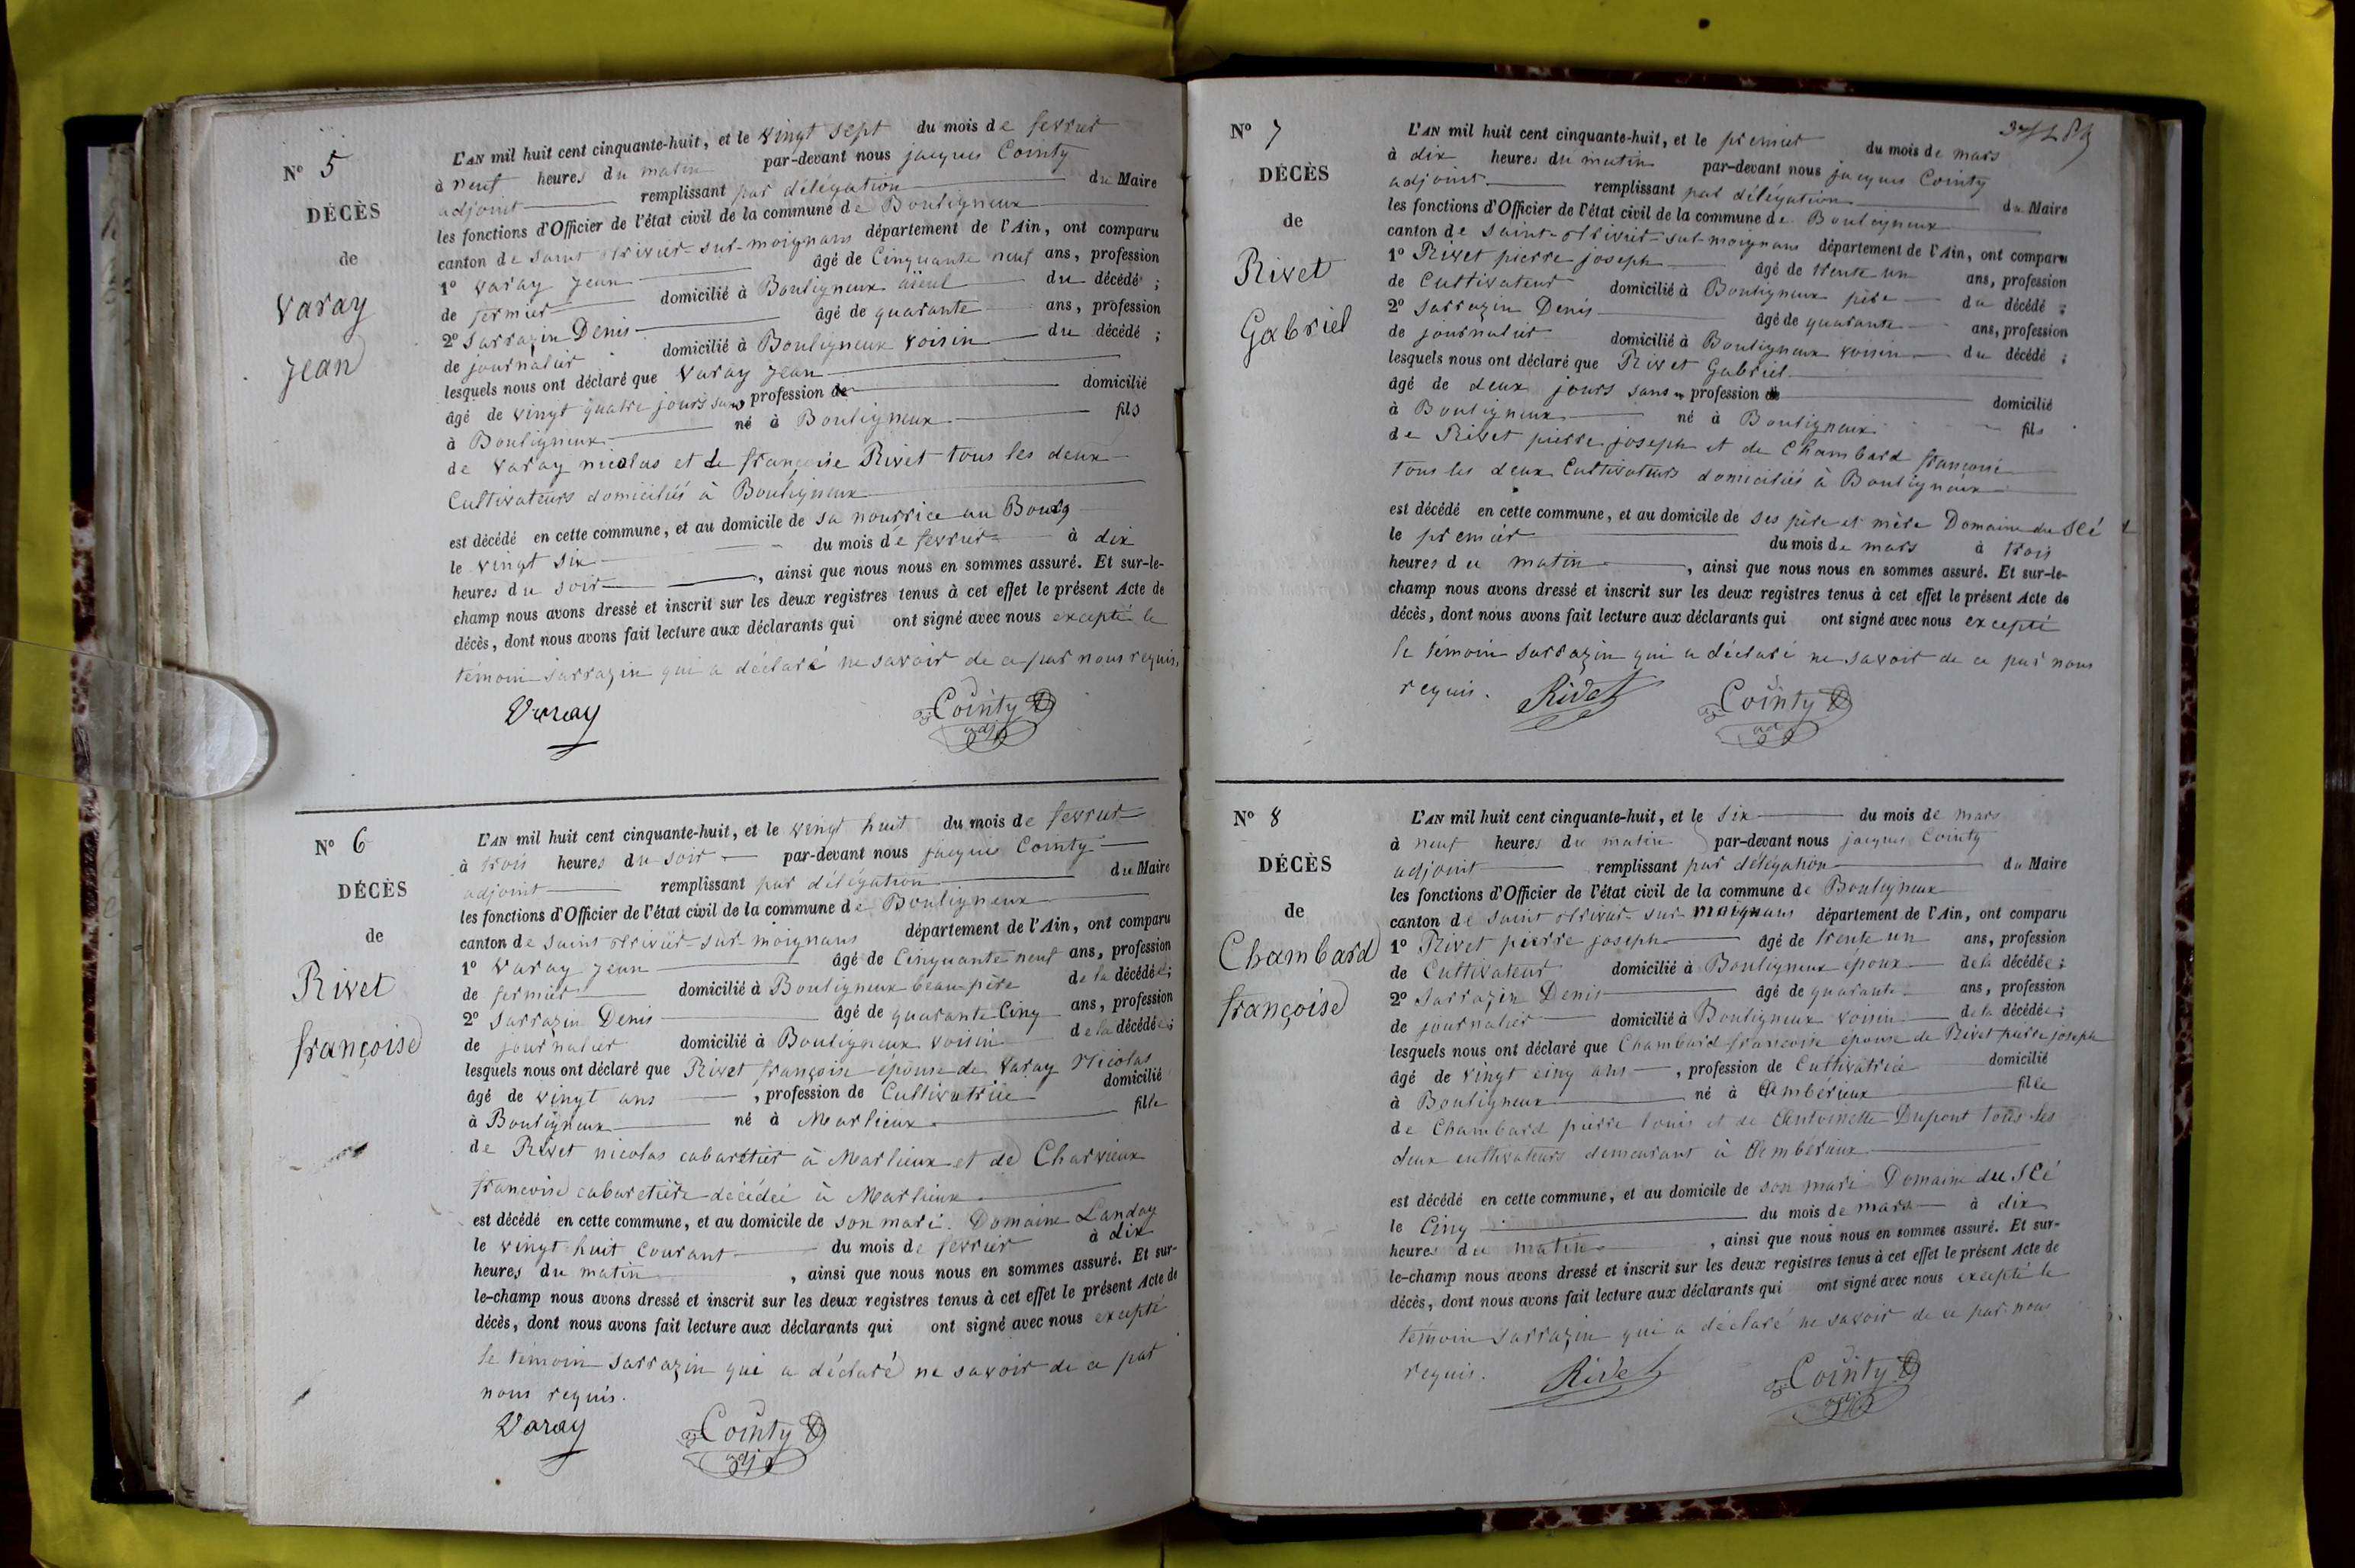 N° 5
DÉCÈS
de
Varay
Jean
L'AN mil huit cent cinquante-huit, et le vingt sept du mois de fevrier
à neuf heures du matin par-devant nous jacques Cointy
adjoint remplissant par délégation du Maire
les fonctions d'Officier de l'état civil de la commune de Bouligneux
canton de saint trivier-sur-moignans département de l'Ain, ont comparu
1° Varay Jean âgé de Cinquante neuf ans, profession
de fermier domicilié à Bouligneux aïeul du décédé ;
2° Sarrazin Denis âgé de quarante ans, profession
de journalier domicilié à Bouligneux voisin du décédé ;
lesquels nous ont déclaré que Varay Jean
âgé de vingt quatre jours sans profession de domicilié
à Bouligneux né à Bouligneux fils
de Varay nicolas et de françoise Rivet tous les deux
Cultivateurs domiciliés à Bouligneux
est décédé en cette commune, et au domicile de sa nourrice au Bourg
le vingt six du mois de fevrier à dix
heures du soir , ainsi que nous nous en sommes assuré. Et sur-le-
champ nous avons dressé et inscrit sur les deux registres tenus à cet effet le présent Acte de
décès, dont nous avons fait lecture aux déclarants qui ont signé avec nous excepté le
témoin Sarrazin qui a déclaré ne savoir de ce par nous requis.
Varay Cointy
adj
N° 6
DÉCÈS
de
Rivet
françoise
L'AN mil huit cent cinquante-huit, et le vingt huit du mois de fevrier
à trois heures du soir par-devant nous jacques Cointy
adjoint remplissant par délégation du Maire
les fonctions d'Officier de l'état civil de la commune de Bouligneux
canton de saint trivier-sur-moignans département de l'Ain, ont comparu
1° Varay Jean âgé de Cinquante neuf ans, profession
de fermier domicilié à Bouligneux beau-père de la décédée ;
2° Sarrazin Denis âgé de quarante Cinq ans, profession
de journalier domicilié à Bouligneux voisin de la décédée ;
lesquels nous ont déclaré que Rivet françoise épouse de Varay Nicolas
âgé de vingt ans , profession de Cultivatrice domicilié
à Bouligneux né à Marlieux fille
de Rivet nicolas cabaretier à Marlieux et de Charvieux
francoise cabaretière décédée à Marlieux
est décédé en cette commune, et au domicile de son mari. Domaine Landay
le vingt huit Courant du mois de fevrier à dix
heures du matin , ainsi que nous nous en sommes assuré. Et sur-
le-champ nous avons dressé et inscrit sur les deux registres tenus à cet effet le présent Acte de
décès, dont nous avons fait lecture aux déclarants qui ont signé avec nous excepté
le témoin Sarrazin qui a déclaré ne savoir de ce par
nous requis.
Varay Cointy
adj
N° 7
DÉCÈS
de
Rivet
Gabriel
L'AN mil huit cent cinquante-huit, et le premier du mois de mars
à dix heures du matin par-devant nous jacques Cointy
adjoint remplissant par délégation du Maire
les fonctions d'Officier de l'état civil de la commune de Bouligneux
canton de saint-trivier-sur-moignans département de l'Ain, ont comparu
1° Rivet pierre joseph âgé de trente un ans, profession
de Cultivateur domicilié à Bouligneux père du décédé ;
2° Sarrazin Denis âgé de quarante ans, profession
de journalier domicilié à Bouligneux voisin du décédé ;
lesquels nous ont déclaré que Rivet Gabriel
âgé de deux jours sans profession de domicilié
à Bouligneux né à Bouligneux fils
de Rivet pierre joseph et de Chambard françoise
tous les deux Cultivateurs domiciliés à Bouligneux
est décédé en cette commune, et au domicile de ses père et mère Domaine du
le premier du mois de mars à trois
heures du matin , ainsi que nous nous en sommes assuré. Et sur-le-
champ nous avons dressé et inscrit sur les deux registres tenus à cet effet le présent Acte de
décès, dont nous avons fait lecture aux déclarants qui ont signé avec nous excepté
le témoin Sarrazin qui a déclaré ne savoir de ce par nous
requis. Rivet Cointy
adj
N° 8
DÉCÈS
de
Chambard
françoise
L'AN mil huit cent cinquante-huit, et le six du mois de mars
à neuf heures du matin par-devant nous jacques Cointy
adjoint remplissant par délégation du Maire
les fonctions d'Officier de l'état civil de la commune de Bouligneux
canton de saint trivier-sur-moignans département de l'Ain, ont comparu
1° Rivet pierre joseph âgé de trente un ans, profession
de Cultivateur domicilié à Bouligneux époux de la décédée ;
2° Sarrazin Denis âgé de quarante ans, profession
de journalier domicilié à Bouligneux voisin de la décédée ;
lesquels nous ont déclaré que Chambard francoise épouse de Rivet pierre joseph
âgé de vingt cinq ans , profession de Cultivatrice domicilié
à Bouligneux né à Ambérieux fille
de Chambard pierre louis et de Antoinette Dupont tous les
deux cultivateurs demeurant à Ambérieux
est décédé en cette commune, et au domicile de son mari Domaine du
le Cinq du mois de mars à dix
heures du matin , ainsi que nous nous en sommes assuré. Et sur-
le-champ nous avons dressé et inscrit sur les deux registres tenus à cet effet le présent Acte de
décès, dont nous avons fait lecture aux déclarants qui ont signé avec nous excepté le
témoin Sarrazin qui a déclaré ne savoir de ce par nous
requis. Rivet Cointy
adj